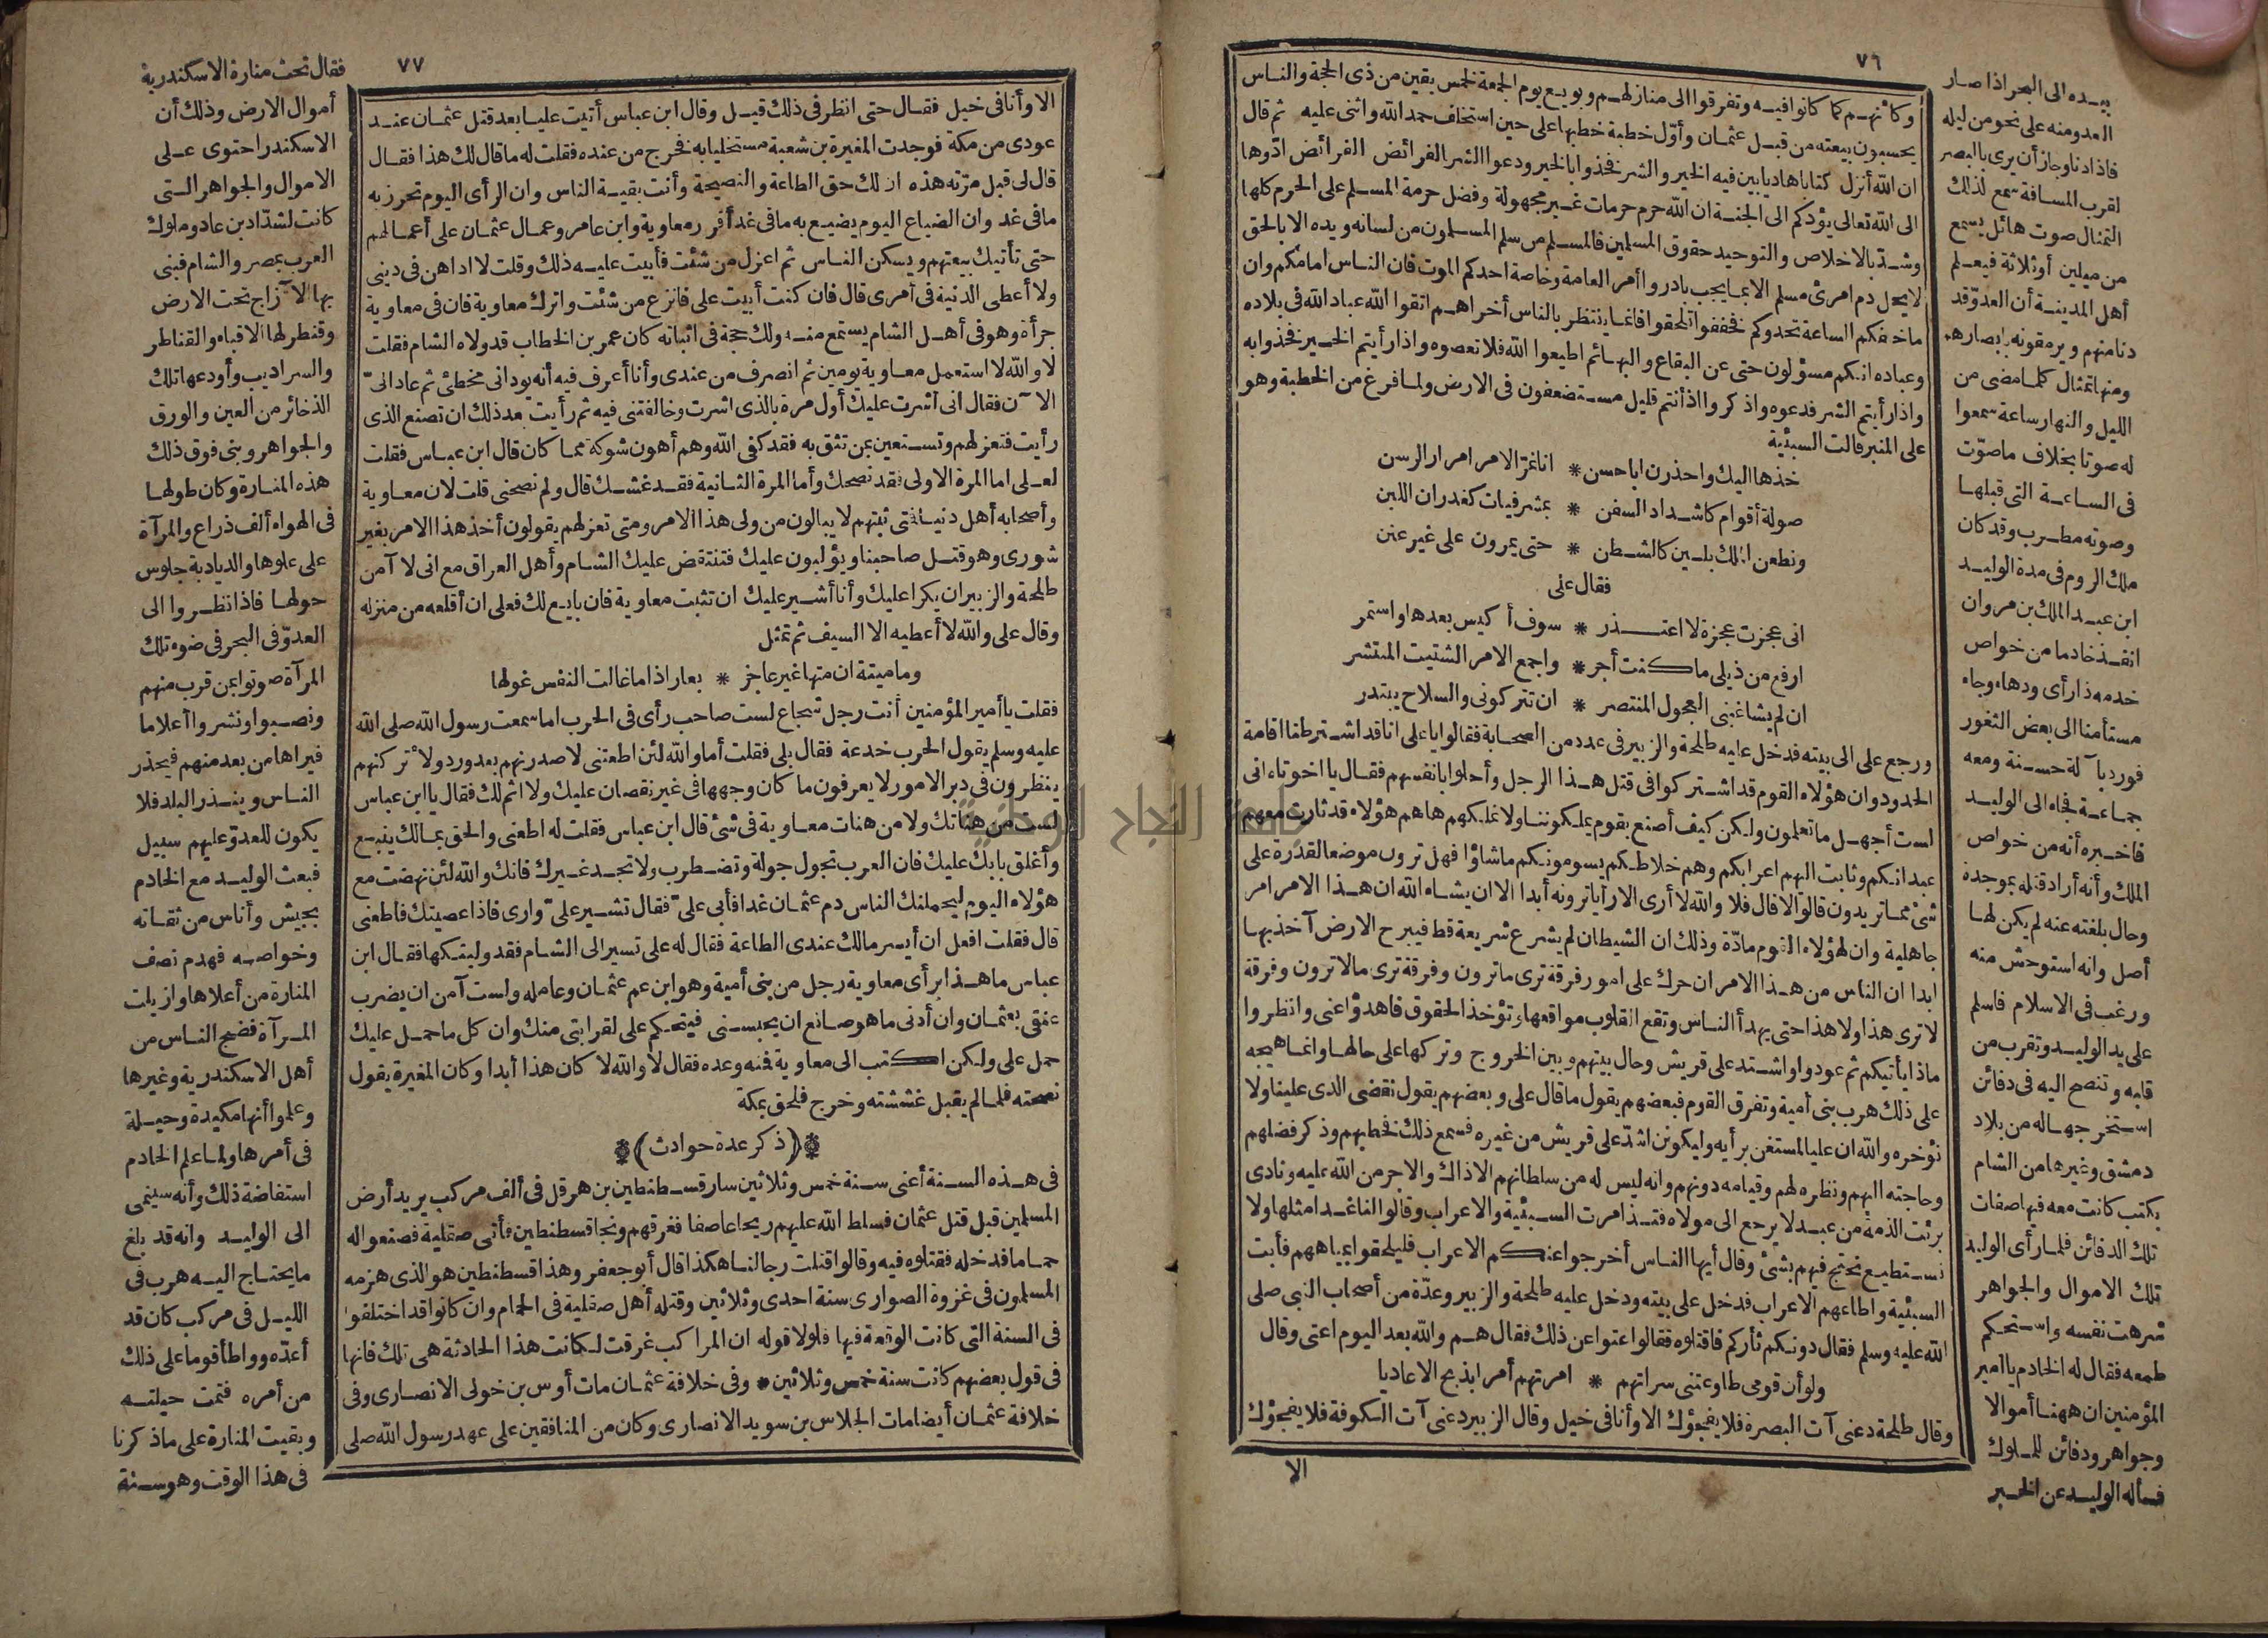 ٧٦
وكأنهم كما كانوا فيه وتفرقوا الى منازلهم وبويع يوم الجمعة لخمس بقين من ذى الحجة والناس
يحسبون بيعته من قبل عثمان وأوّل خطبة خطبها على حين استخلف حمد الله واثنى عليه ثم قال
ان الله أنزل كتابا هاديا يبين فيه الخير والشر فخذوا بالخير ودعوا الشر الفرائض الفرائض ادّوها
الى الله تعالى يؤدكم الى الجنة ان الله حرم حرمات غير مجهولة وفضل حرمة المسلم على الحرم كلها
وشدّ بالاخلاص والتوحيد حقوق المسلمين فالمسلم من سلم المسلمون من لسانه ويده الا بالحق
لا يحل دم امرئ مسلم الا بما يجب بادروا أمر العامة وخاصة احدكم الموت فان الناس امامكم وان
ما خلفكم الساعة تحدوكم فخففوا تلحقوا فانما ينتظر بالناس أخراهم اتقوا الله عباد الله فى بلاده
وعباده انكم مسؤلون حتى عن البقاع والبهائم اطيعوا الله فلا تعصوه واذا رأيتم الخير فخذوا به
واذا رأيتم الشر فدعوه واذكروا اذ أنتم قليل مستضعفون فى الارض ولما فرغ من الخطبة وهو
على المنبر قالت السبئية
خذها اليك واحذرن ابا حسن * انا نمرّ الامر امرار الرسن
صولة أقوام كاشداد السفن * بمشرفيات كغدران اللبن
ونطعن الملك بلين كالشطن * حتى يمرون على غير عنن
فقال على
انى عجزت عجزة لا اعتذر * سوف أكيس بعدها واستمر
ارفع من ذيلى ما كنت أجر * واجمع الامر الشتيت المنتشر
ان لم يشاغبنى العجول المنتصر * ان تتركونى والسلاح يبتدر
ورجع على الى بيته فدخل عليه طلحة والزبير فى عدد من الصحابة فقالوا يا على انا قد اشترطنا اقامة
الحدود وان هؤلاء القوم قد اشتركوا فى قتل هذا الرجل وأحلوا بانفسهم فقال يا اخوتاه انى
لست أجهل ما تعلمون ولكن كيف أصنع بقوم يملكوننا ولا نملكهم هاهم هؤلاء قد ثارت معهم
عبدانكم وثابت اليهم اعرابكم وهم خلاطكم يسومونكم ماشاؤا فهل ترون موضعا لقدرة على
شئ مما تريدون قالوا لا قال فلا والله لا أرى الا رأيا ترونه أبدا الا ان يشاء الله ان هذا الامر امر
جاهلية وان لهؤلاء القوم مادّة وذلك ان الشيطان لم يشرع شريعة قط فيبرح الارض آخذ بها
ابدا ان الناس من هذا الامر ان حرك على امور فرقة ترى ماترون وفرقة ترى مالا ترون وفرقة
لا ترى هذا ولا هذا حتى يهدأ الناس وتقع القلوب مواقعها وتؤخذ الحقوق فاهدؤا عنى وانظروا
ماذا يأتيكم ثم عودوا واشتد على قريش وحال بينهم وبين الخروج وتركها على حالها وانما هيجه
على ذلك هرب بنى أمية وتفرق القوم فبعضهم يقول ما قال على وبعضهم يقول نقضى الذى علينا ولا
نؤخره والله ان عليا لمستغن برأيه وليكونن اشدّ على قريش من غيره فسمع ذلك فخطبهم وذكر فضلهم
وحاجته اليهم ونظره لهم وقيامه دونهم وانه ليس له من سلطانهم الا ذاك والاجر من الله عليه ونادى
برئت الذمة من عبد لا يرجع الى مولاه فتذامرت السبئية والاعراب وقالوا لنا غدا مثلها ولا
نستطيع نحتج فيهم بشئ وقال أيها الناس أخرجوا عنكم الاعراب فليلحقوا بمياههم فأبت
السبئية واطاعهم الاعراب فدخل على بيته ودخل عليه طلحة والزبير وعدّة من أصحاب النبى صلى
الله عليه وسلم فقال دونكم ثأركم فاقتلوه فقالوا عتوا عن ذلك فقال هم والله بعد اليوم اعتى وقال
ولو أن قومى طاوعتنى سراتهم * امرتهم أمرا يذيخ الاعاديا
وقال طلحة دعنى آت البصرة فلا يفجؤك الا وأنا فى خيل وقال الزبير دعنى آت الكوفة فلا يفجؤك
الا
بيده الى البحر اذا صار
العدو منه على نحو من ليله
فاذا دنا وجاز أن يرى بالبصر
لقرب المسافة سمع لذلك
التمثال صوت هائل يسمع
من ميلين أو ثلاثة فيعلم
أهل المدينة أن العدوّ قد
دنا منهم ويرمقونه بابصارهم
ومنها تمثال كلما مضى من
الليل والنهار ساعة سمعوا
له صوتا بخلاف ما صوّت
فى الساعة التى قبلها
وصوته مطرب وقد كان
ملك الروم فى مدة الوليد
ابن عبد الملك بن مروان
انفذ خادما من خواص
خدمه ذا رأى ودهاء وجاء
مستأمنا الى بعض الثغور
فورد بآلة حسنة ومعه
جماعة فجاء الى الوليد
فاخبره أنه من خواص
الملك وأنه أراد قتله بموجدة
وحال بلغته عنه لم يكن لها
أصل وانه استوحش منه
ورغب فى الاسلام فاسلم
على يد الوليد وتقرب من
قلبه وتنصح اليه فى دفائن
استخرجها له من بلاد
دمشق وغيرها من الشام
بكتب كانت معه فيها صفات
تلك الدفائن فلما رأى الوليد
تلك الاموال والجواهر
شرهت نفسه واستحكم
طمعه فقال له الخادم يا امير
المؤمنين ان ههنا أموالا
وجواهر ودفائن للملوك
فسأله الوليد عن الخبر
٧٧
الا وأنا فى خيل فقال حتى انظر فى ذلك قيل وقال ابن عباس أتيت عليا بعد قتل عثمان عند
عودى من مكة فوجدت المغيرة بن شعبة مستخليا به فخرج من عنده فقلت له ما قال لك هذا فقال
قال لى قبل مرّته هذه ان لك حق الطاعة والنصيحة وأنت بقية الناس وان الرأى اليوم تحرز به
ما فى غد وان الضياع اليوم يضيع به ما فى غد أقر ر معاوية وابن عامر وعمال عثمان على أعمالهم
حتى تأتيك بيعتهم ويسكن الناس ثم اعزل من شئت فأبيت عليه ذلك وقلت لا اداهن فى دينى
ولا أعطى الدنية فى أمرى قال فان كنت أبيت على فانزع من شئت واترك معاوية فان فى معاوية
جرأة وهو فى أهل الشام يستمع منه ولك حجة فى اثباته كان عمر بن الخطاب قد ولاه الشام فقلت
لا والله لا استعمل معاوية يومين ثم انصرف من عندى وأنا أعرف فيه أنه يودانى مخطئ ثم عاد الىّ
الآن فقال انى أشرت عليك أول مرة بالذى اشرت وخالفتنى فيه ثم رأيت بعد ذلك ان تصنع الذى
رأيت فتعزلهم وتستعين بمن تثق به فقد كفى الله وهم أهون شوكة مما كان قال ابن عباس فقلت
لعلى اما المرة الاولى فقد نصحك وأما المرة الثانية فقد غشك قال ولم نصحنى قلت لان معاوية
وأصحابه أهل دنيا فتى تثبتهم لا يبالون من ولى هذا الامر ومتى تعزلهم يقولون أخذ هذا الامر بغير
شورى وهو قتل صاحبنا ويؤلبون عليك فتنتقض عليك الشام وأهل العراق مع انى لا آمن
طلحة والزبير ان يكرا عليك وأنا أشير عليك ان تثبت معاوية فان بايع لك فعلى ان أقلعه من منزله
وقال على والله لا أعطيه الا السيف ثم تمثل
وما ميتة ان متها غير عاجز * بعار اذا ما غالت النفس غولها
فقلت يا أمير المؤمنين أنت رجل شجاع لست صاحب رأى فى الحرب اما سمعت رسول الله صلى الله
عليه وسلم يقول الحرب خدعة فقال بلى فقلت أما والله لئن اطعتنى لاصدرنهم بعد ورد ولاتركنهم
ينظرون فى دبر الامور لا يعرفون ما كان وجهها فى غير نقصان عليك ولا اثم لك فقال يا ابن عباس
لست من هناتك ولا من هنات معاوية فى شئ قال ابن عباس فقلت له اطعنى والحق بمالك بينبع
وأغلق بابك عليك فان العرب تجول جولة وتضطرب ولا تجد غيرك فانك والله لئن نهضت مع
هؤلاء اليوم ليحملنك الناس دم عثمان غدا فأبى علىّ فقال تشير علىّ وارى فاذا عصيتك فاطعنى
قال فقلت افعل ان أيسر مالك عندى الطاعة فقال له على تسير الى الشام فقد وليتكها فقال ابن
عباس ما هذا برأى معاوية رجل من بنى أمية وهو ابن عم عثمان وعامله ولست آمن ان يضرب
عنقى بعثمان وان أدنى ما هو صانع ان يحبسنى فيتحكم على لقرابتى منك وان كل ما حمل عليك
حمل على ولكن اكتب الى معاوية فمنه وعده فقال لا والله لا كان هذا أبدا وكان المغيرة يقول
نصحته فلما لم يقبل غششته وخرج فلحق بمكة
(ذكر عدة حوادث)
فى هذه السنة أعنى سنة خمس وثلاثين سار قسطنطين بن هرقل فى ألف مركب يريد أرض
المسلمين قبل قتل عثمان فسلط الله عليهم ريحا عاصفا فغرقهم ونجا قسطنطين فأتى صقلية فصنعوا له
حماما فدخله فقتلوه فيه وقالوا قتلت رجالنا هكذا قال أبو جعفر وهذا قسطنطين هو الذى هزمه
المسلمون فى غزوة الصوارى سنة احدى وثلاثين وقتله أهل صقلية فى الحمام وان كانوا قد اختلفوا
فى السنة التى كانت الوقعة فيها فلولا قوله ان المراكب غرقت لكانت هذا الحادثة هى تلك فانها
فى قول بعضهم كانت سنة خمس وثلاثين * وفى خلافة عثمان مات أوس بن خولى الانصارى وفى
خلافة عثمان أيضا مات الجلاس بن سويد الانصارى وكان من المنافقين على عهد رسول الله صلى
فقال تحت منارة الاسكندرية
أموال الارض وذلك أن
الاسكندر احتوى على
الاموال والجواهر التى
كانت لشدّاد بن عاد وملوك
العرب بمصر والشام فبنى
بها الآزاج تحت الارض
وقنطر لها الاقباء والقناطر
والسراديب وأودعها تلك
الذخائر من العين والورق
والجواهر وبنى فوق ذلك
هذه المنارة وكان طولها
فى الهواء ألف ذراع والمرآة
على علوها والديادبة جلوس
حولها فاذا نظروا الى
العدوّ فى البحر فى ضوء تلك
المرآة صوّتوا بمن قرب منهم
ونصبوا ونشروا أعلاما
فيراها من بعد منهم فيحذر
الناس وينذر البلد فلا
يكون للعدوّ عليهم سبيل
فبعث الوليد مع الخادم
بجيش وأناس من ثقاته
وخواصه فهدم نصف
المنارة من أعلاها وازيلت
المرآة فضج الناس من
أهل الاسكندرية وغيرها
وعلموا أنها مكيدة وحيلة
فى أمرها ولما علم الخادم
استفاضة ذلك وأنه سينمى
الى الوليد وانه قد بلغ
ما يحتاج اليه هرب فى
الليل فى مركب كان قد
أعدّه وواطأ قوما على ذلك
من أمره فتمت حيلته
وبقيت المنارة على ما ذكرنا
فى هذا الوقت وهو سنة